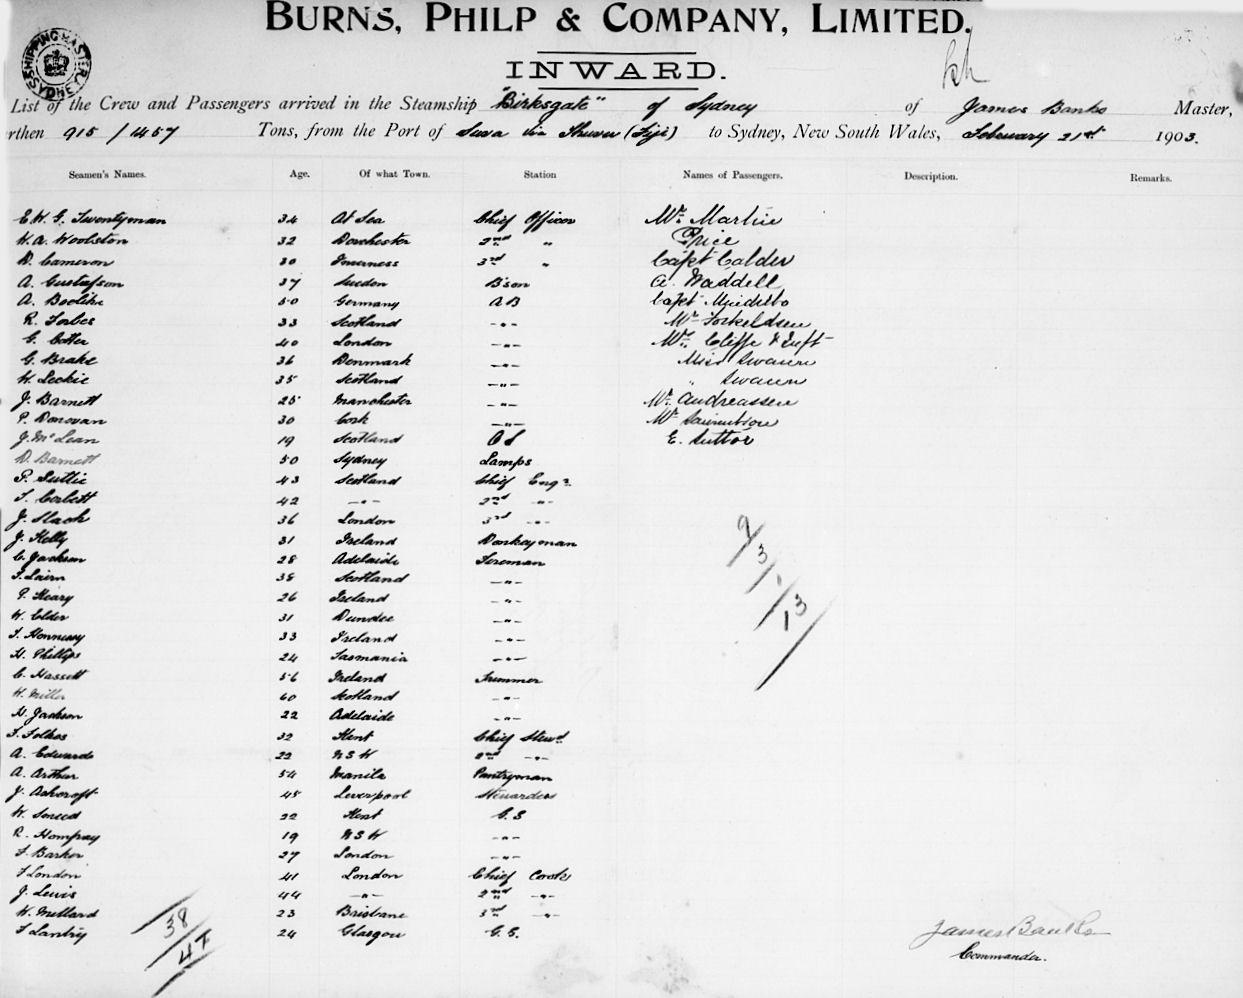 BURNS, PHILP & COMPANY, LIMITED.
SHIPPING MASTER SYDNEY
INWARD.
List of the Crew and Passengers arrived in the Steamship "Birksgate" of Sydney of James Banks Master,
rthen 915 / 457 Tons, from the Port of Suva via (Fiji) to Sydney, New South Wales, February 21st 1903.
Seamen's Names. Age. Of what Town. Station Names of Passengers. Description. Remarks.
E. W. G. Twentyman 34 At Sea Chief Officer Mr. Martin
W. A. Woolston 32 Dorchester 2nd " Price
D. Cameron 30 Inverness 3rd " Capt Calder
A. Gustafson 37 Sweden B'son A. Waddell
A. 50 Germany AB Capt
R. Forbes 33 Scotland -"- Mr Torkeldsen
G. Cotter 40 London -"- Mr. Cliffe &
G. Brake 36 Denmark -"- Miss Swann
W. Leckie 35 Scotland -"- " Swann
J. Barnett 25 Manchester -"- Mr. Andreassen
P. Donovan 30 Cork -"- Mr
J. McLean 19 Scotland OS E. Suttor
D. Barnett 50 Sydney Lamps
P. Suttie 43 Scotland Chief Engr.
T. Corbett 42 -"- 2nd -"-
J. Slach 36 London 3rd -"-
J. Kelly 31 Ireland Donkeyman
C. Jackson 28 Adelaide Fireman
T. Cairn 38 Scotland -"-
P. Keary 26 Ireland -"-
W. Elder 31 Dundee -"-
T. Hennessy 33 Ireland -"-
H. Phillips 24 Tasmania -"-
C. Hassett 56 Ireland Trimmer
W. Miller 60 Scotland -"-
H. Jackson 22 Adelaide -"-
T. Folkes 32 Kent Chief Stewd
A. Edwards 22 NSW 2nd -"-
A. Arthur 54 Manila Pantryman
J. Ashcroft 45 Liverpool Stewardess
W. Sneed 22 Kent G.S
R. Hompray 19 NSW -"-
F. Barker 27 London -"-
F London 41 London Chief Cook
J. Lewis 44 -"- 2nd -"-
W. Millard 23 Brisbane 3rd -"-
T Landry 24 Glasgow G.S.
9
3
13
38
47
James Banks
Commander.